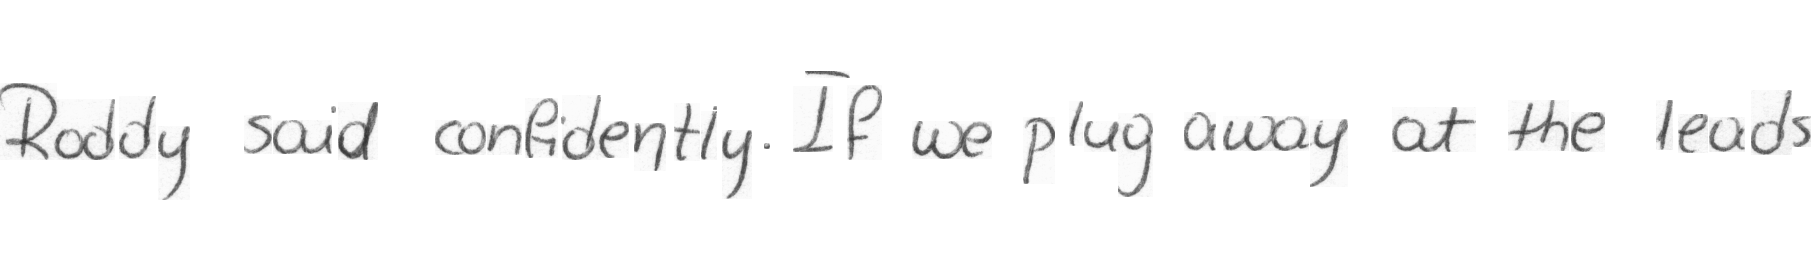 Roddy said confidently. If we plug away at the leads